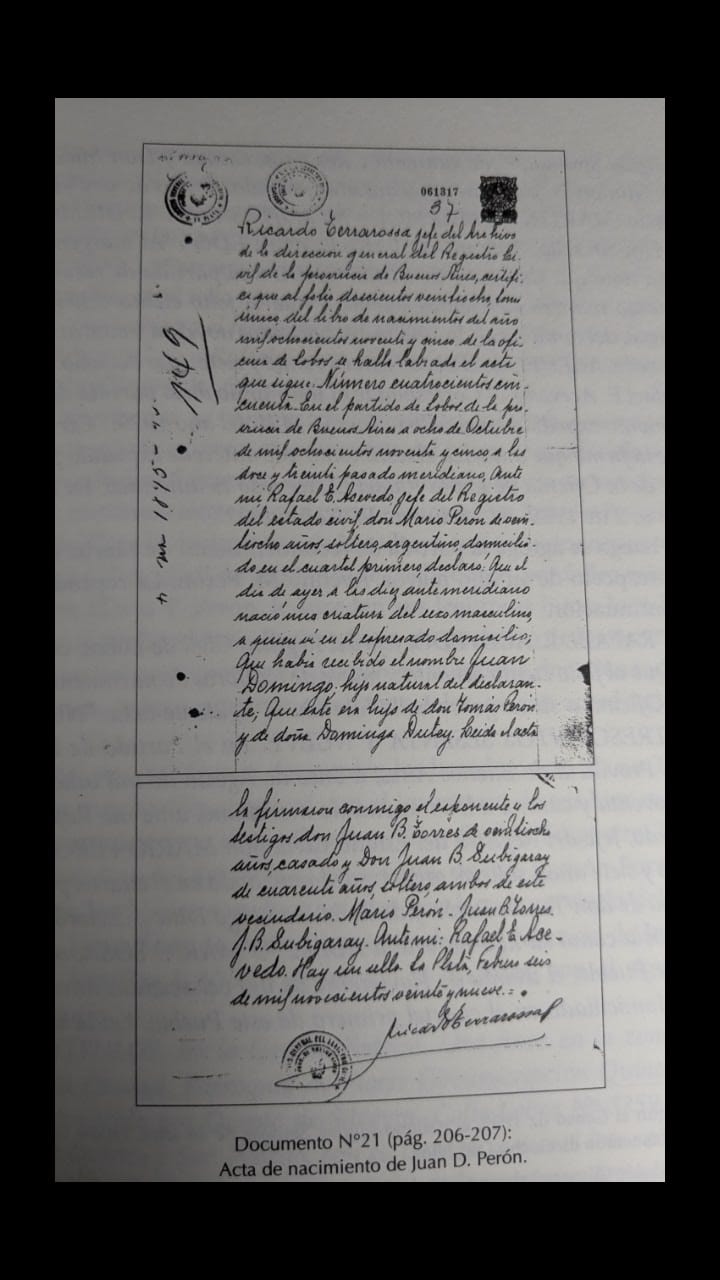 061317
37
149
Ricardo Terrarossa jefe del Archivo
de la dirección general del Registro Ci-
vil de la provincia de Buenos Aires, certifi-
ca que al folio doscientos veintiocho, tomo
único, del libro de nacimientos del año
mil ochocientos noventa y cinco de la ofi-
cina de Lobos se halla labrada el acta
que sigue: Número cuatrocientos cin-
cuenta. En el partido de Lobos de la pro-
vincia de Buenos Aires a ocho de Octubre
de mil ochocientos noventa y cinco, a las
doce y treinta pasado meridiano, Ante
mi Rafael E. Acevedo jefe del Registro
del estado civil, don Mario Perón de vein-
tiocho años, soltero, argentino, domicilia-
do en el cuartel primero, declaró: Que el
dia de ayer a las diez ante meridiano
nació una criatura del sexo masculino,
a quien vi en el expresado domicilio;
Que habia recibido el nombre Juan
Domingo, hijo natural del declaran-
te; Que este era hijo de don Tomás Perón
y de doña Dominga Dutey. Leida el acta
la firmaron conmigo el exponente y los
testigos don Juan B. Torres de veintiocho
años, casado y Don Juan B. Subigaray
de cuarenta años, soltero, ambos de este
vecindario. Mario Perón - Juan B. Torres.
J. B. Subigaray. Ante mi: Rafael E. Ace-
vedo. Hay un sello. La Plata, Febrero seis
de mil novecientos veinte y nueve.=.
Ricardo Terrarossa
Documento N°21 (pág. 206-207):
Acta de nacimiento de Juan D. Perón.